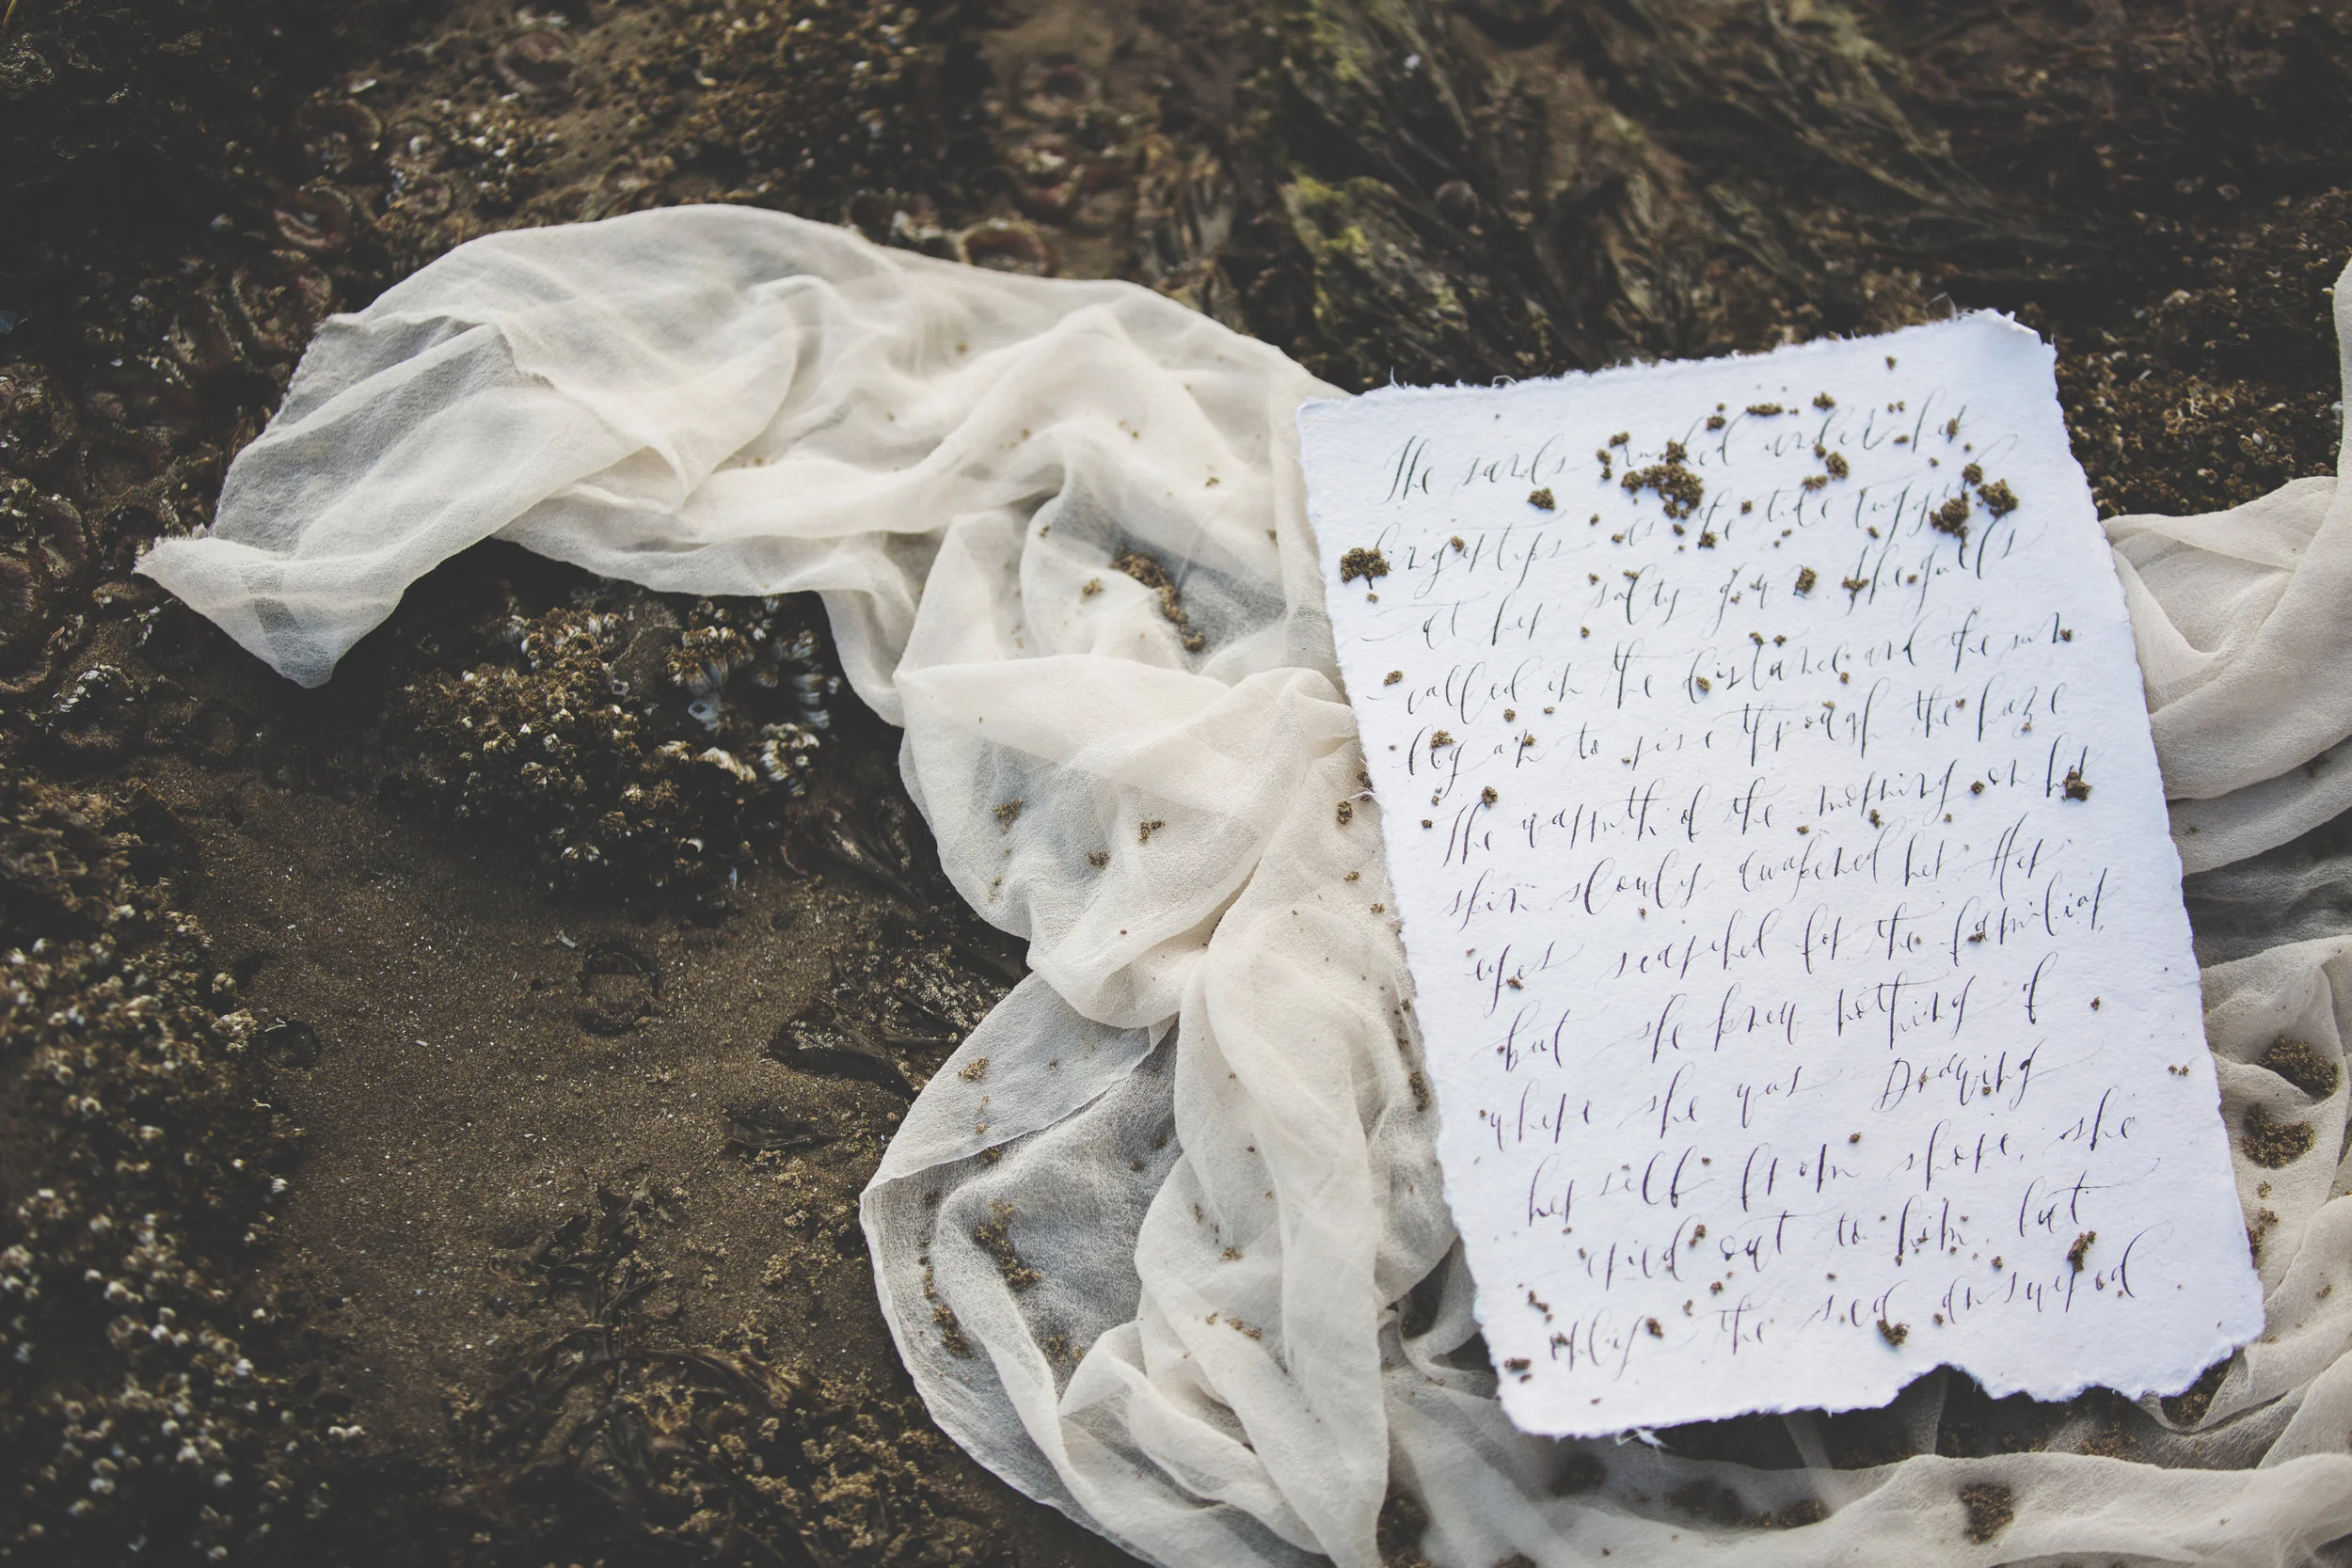 The sands rushed under her
fingertips as the tide tugged
at her salty gown. The gulls
called in the distance and the sun
began to rise through the haze
The warmth of the morning on her
skin slowly awakened her. Her
eyes searched for the familiar,
but she knew nothing of
where she was. Drawing
herself from shore, she
cried out to him, but
only the sea answered